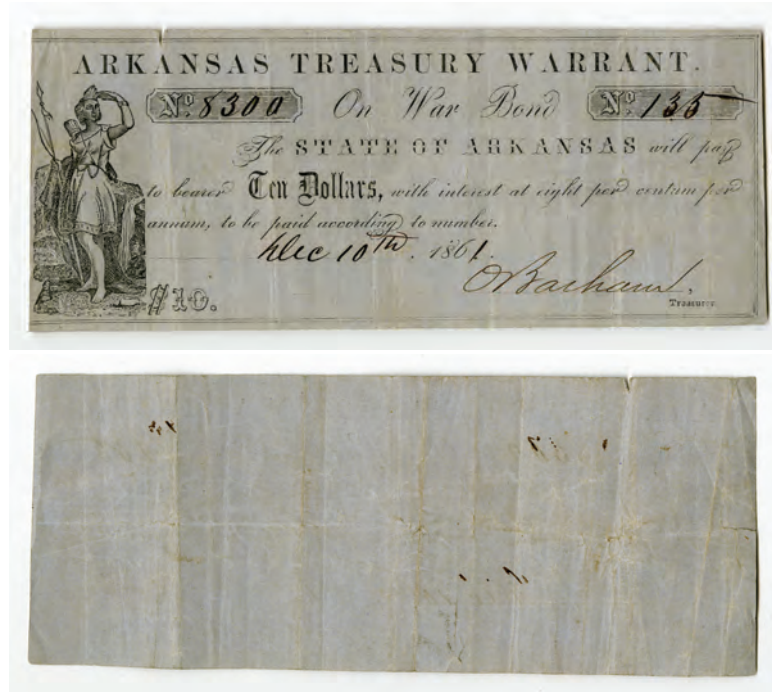 ARKANSAS TREASURY WARRANT.
No. 8300 On War Bond No. 135
The STATE OF ARKANSAS will pay
to bearer Ten Dollars, with interest at eight per centum per
annum, to be paid according to number.
Dec 10th. 1861.
$10.
Treasurer.